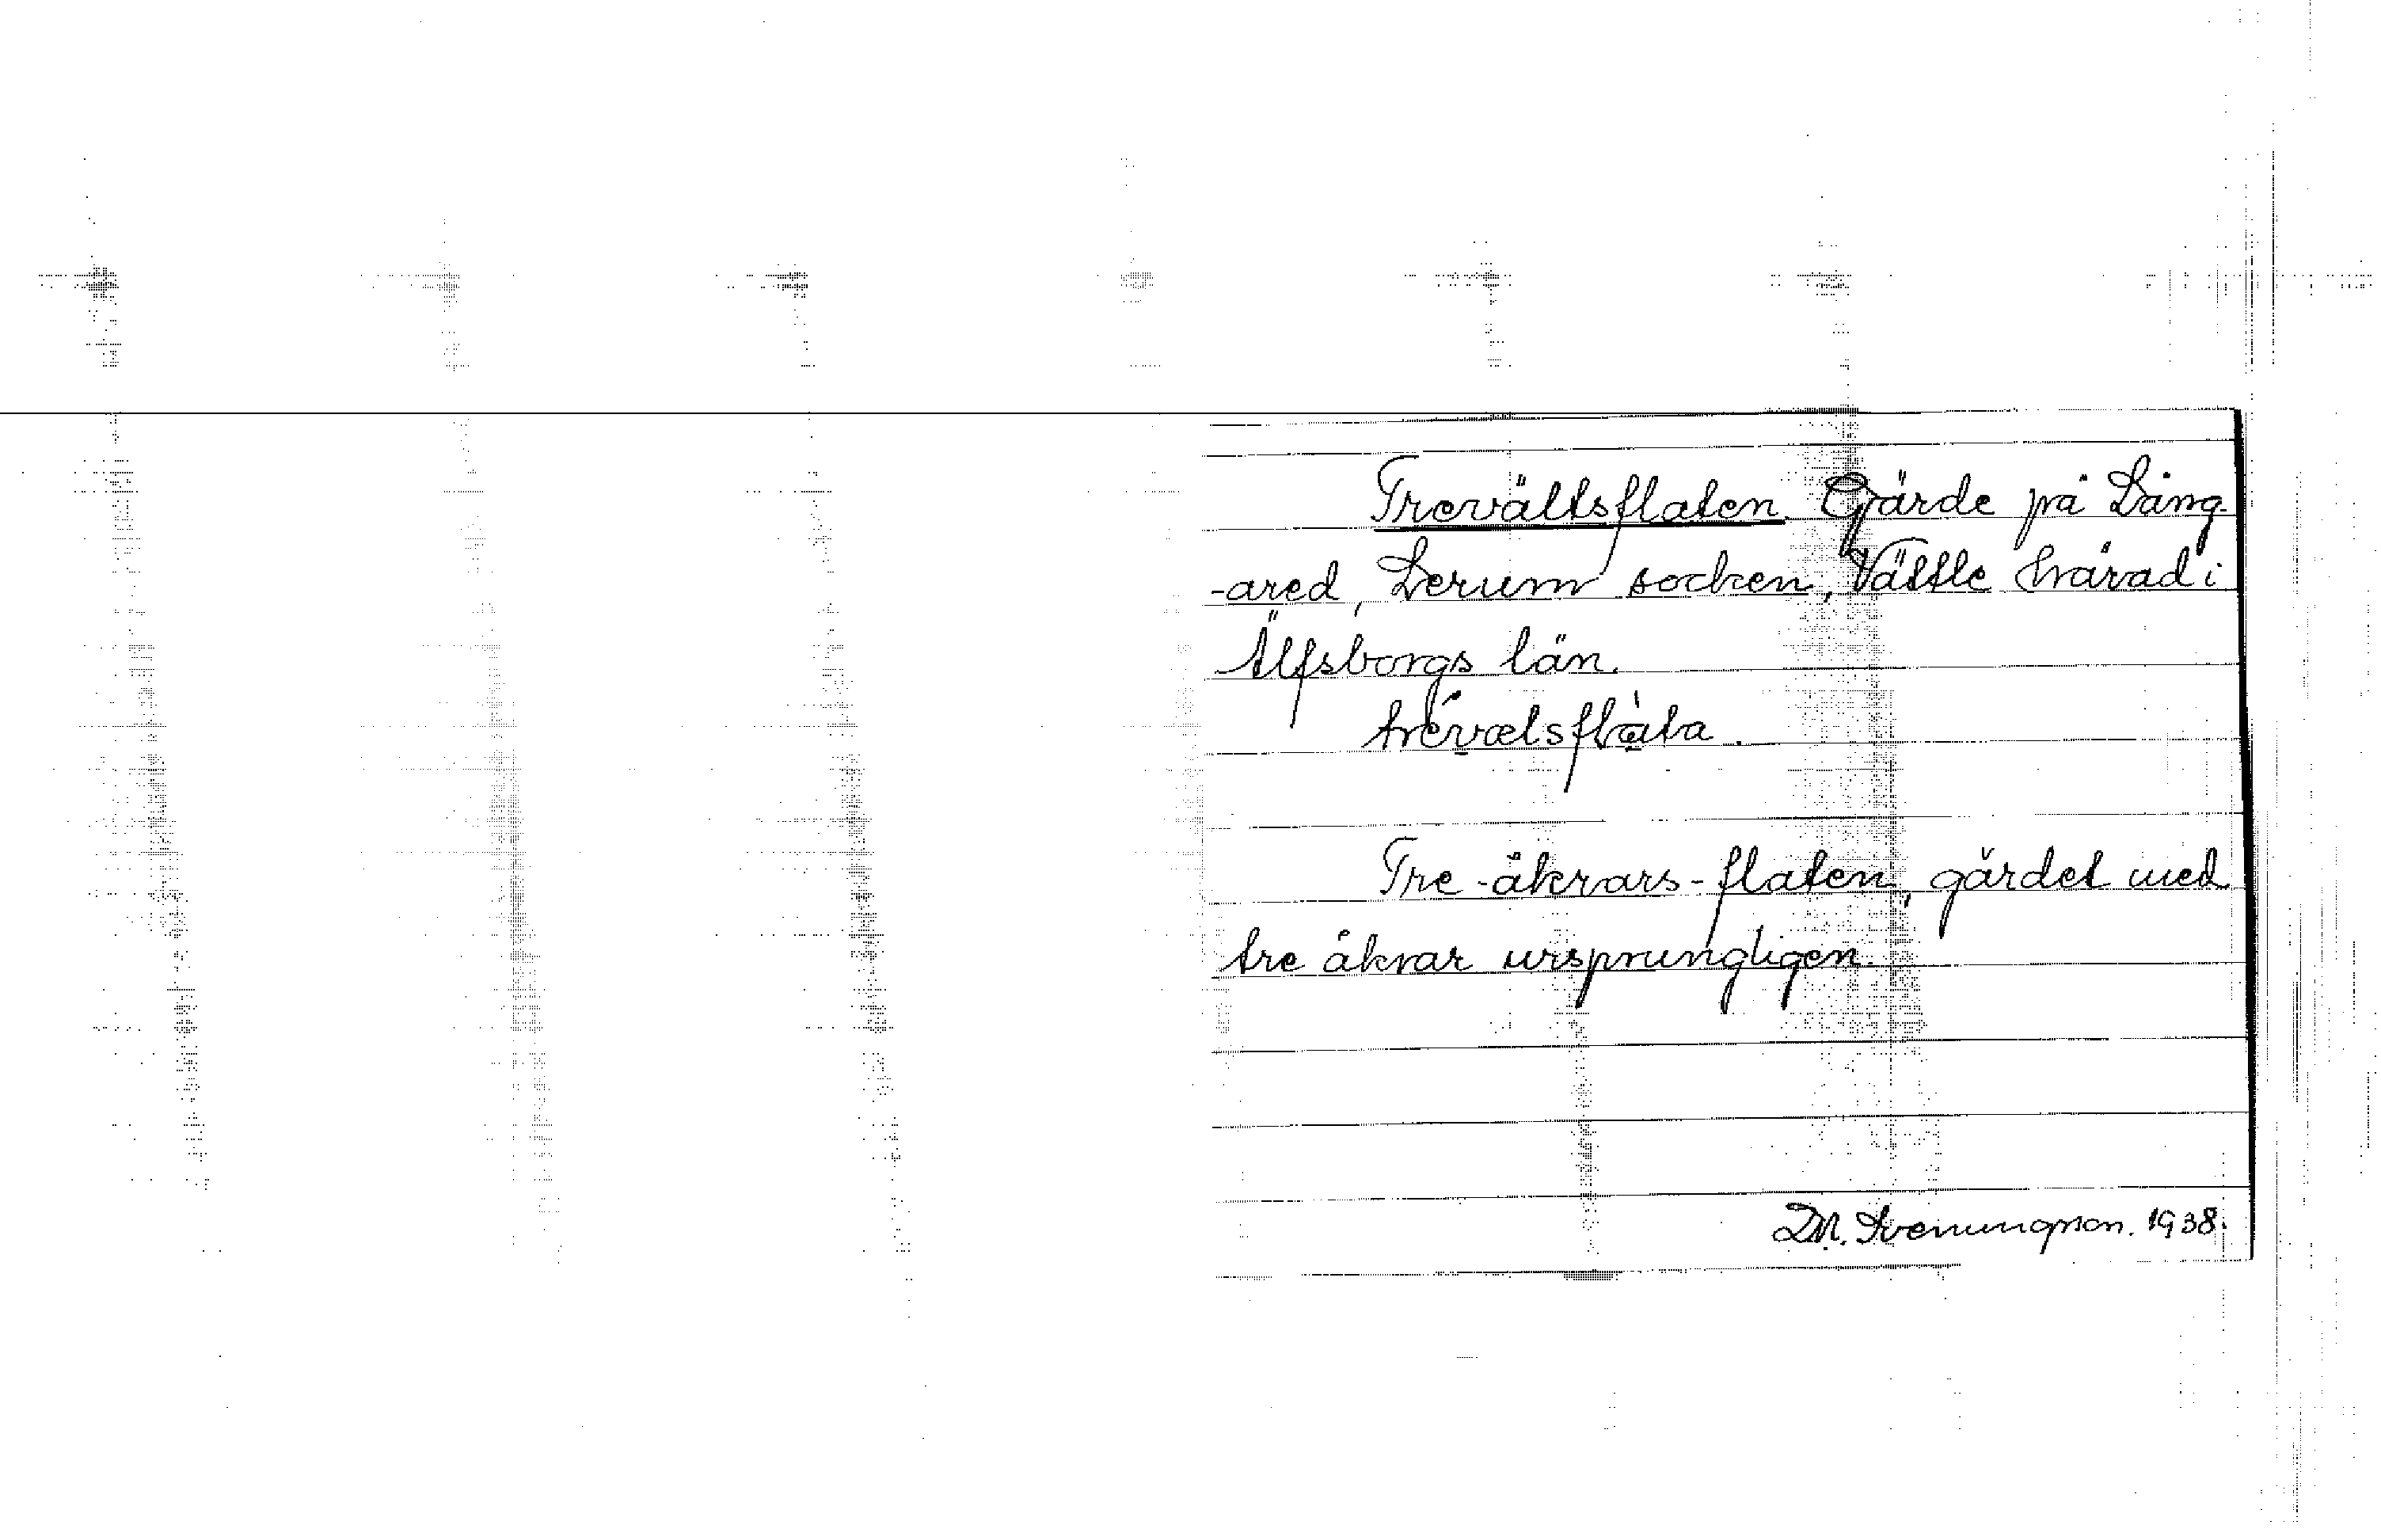 Trevältsflaten. Gärde på Lång-
-ared, Lerum socken, Vättle härad i
Älfsborgs län.
trévælsflàta.
Tre-åkrars-flaten, gärdet med
tre åkrar ursprungligen.
D.N. Svenungson. 1938.